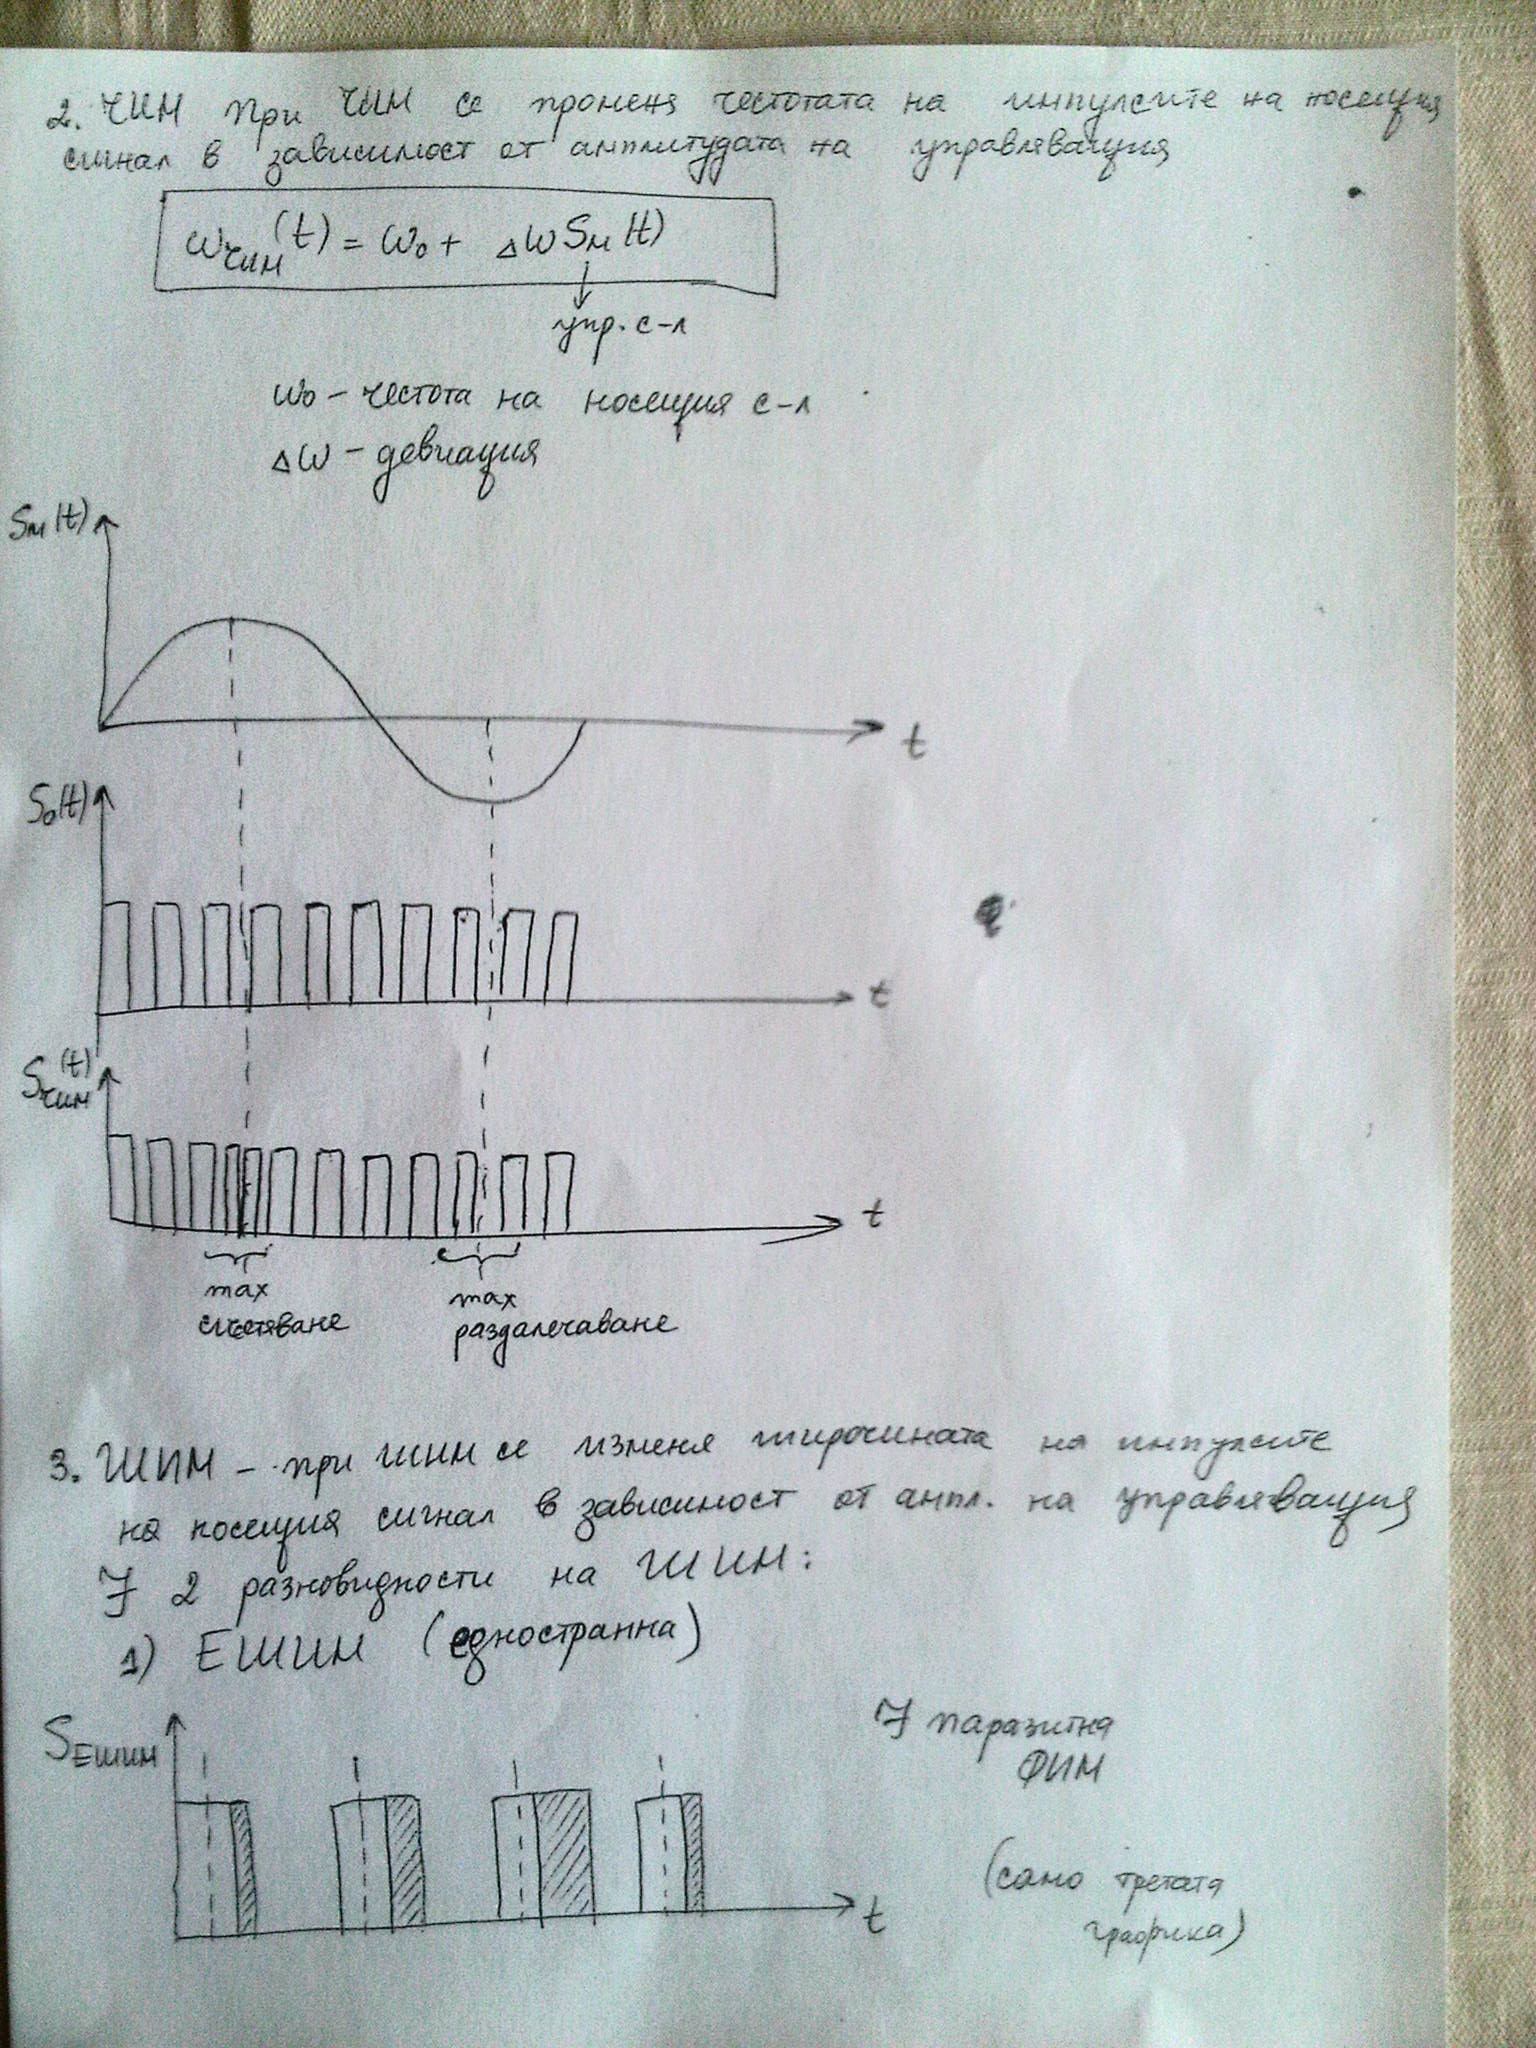 2. ЧИМ При ЧИМ се променя честотата на импулсите на носещия
сигнал в зависимост от амплитудата на управляващия
ω_ЧИМ(t) = ω₀ + Δω Sм(t)
упр. с-л
ω₀ – честота на носещия с-л
Δω – девиация
Sм(t)
t
S₀(t)
t
S_ЧИМ(t)
t
max
сгъстяване
max
раздалечаване
3. ШИМ – при ШИМ се изменя широчината на импулсите
на носещия сигнал в зависимост от ампл. на управляващия
∃ 2 разновидности на ШИМ:
1) ЕШИМ (едностранна)
S_ЕШИМ
t
∃ паразитна
ФИМ
(само третата
графика)